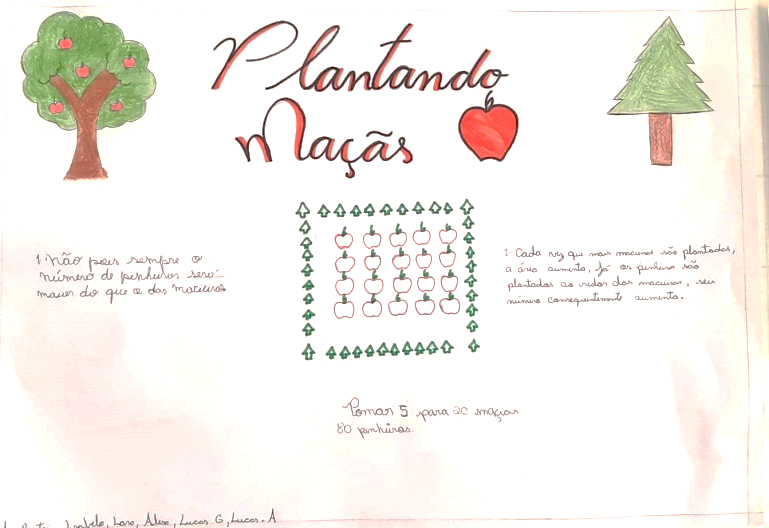 Plantando
Maçãs
1. Não pois sempre o
número de pinheiros será
maior do que o das macieiras
1. Cada vez que mais macieiras são plantadas,
a área aumenta, já os pinheiros são
plantadas ao redor das macieiras, seu
número consequentemente aumenta.
Pomar 5 para 20 maçãs
80 pinheiros.
Isabela, Lara, Alexa, Lucas G, Lucas. A